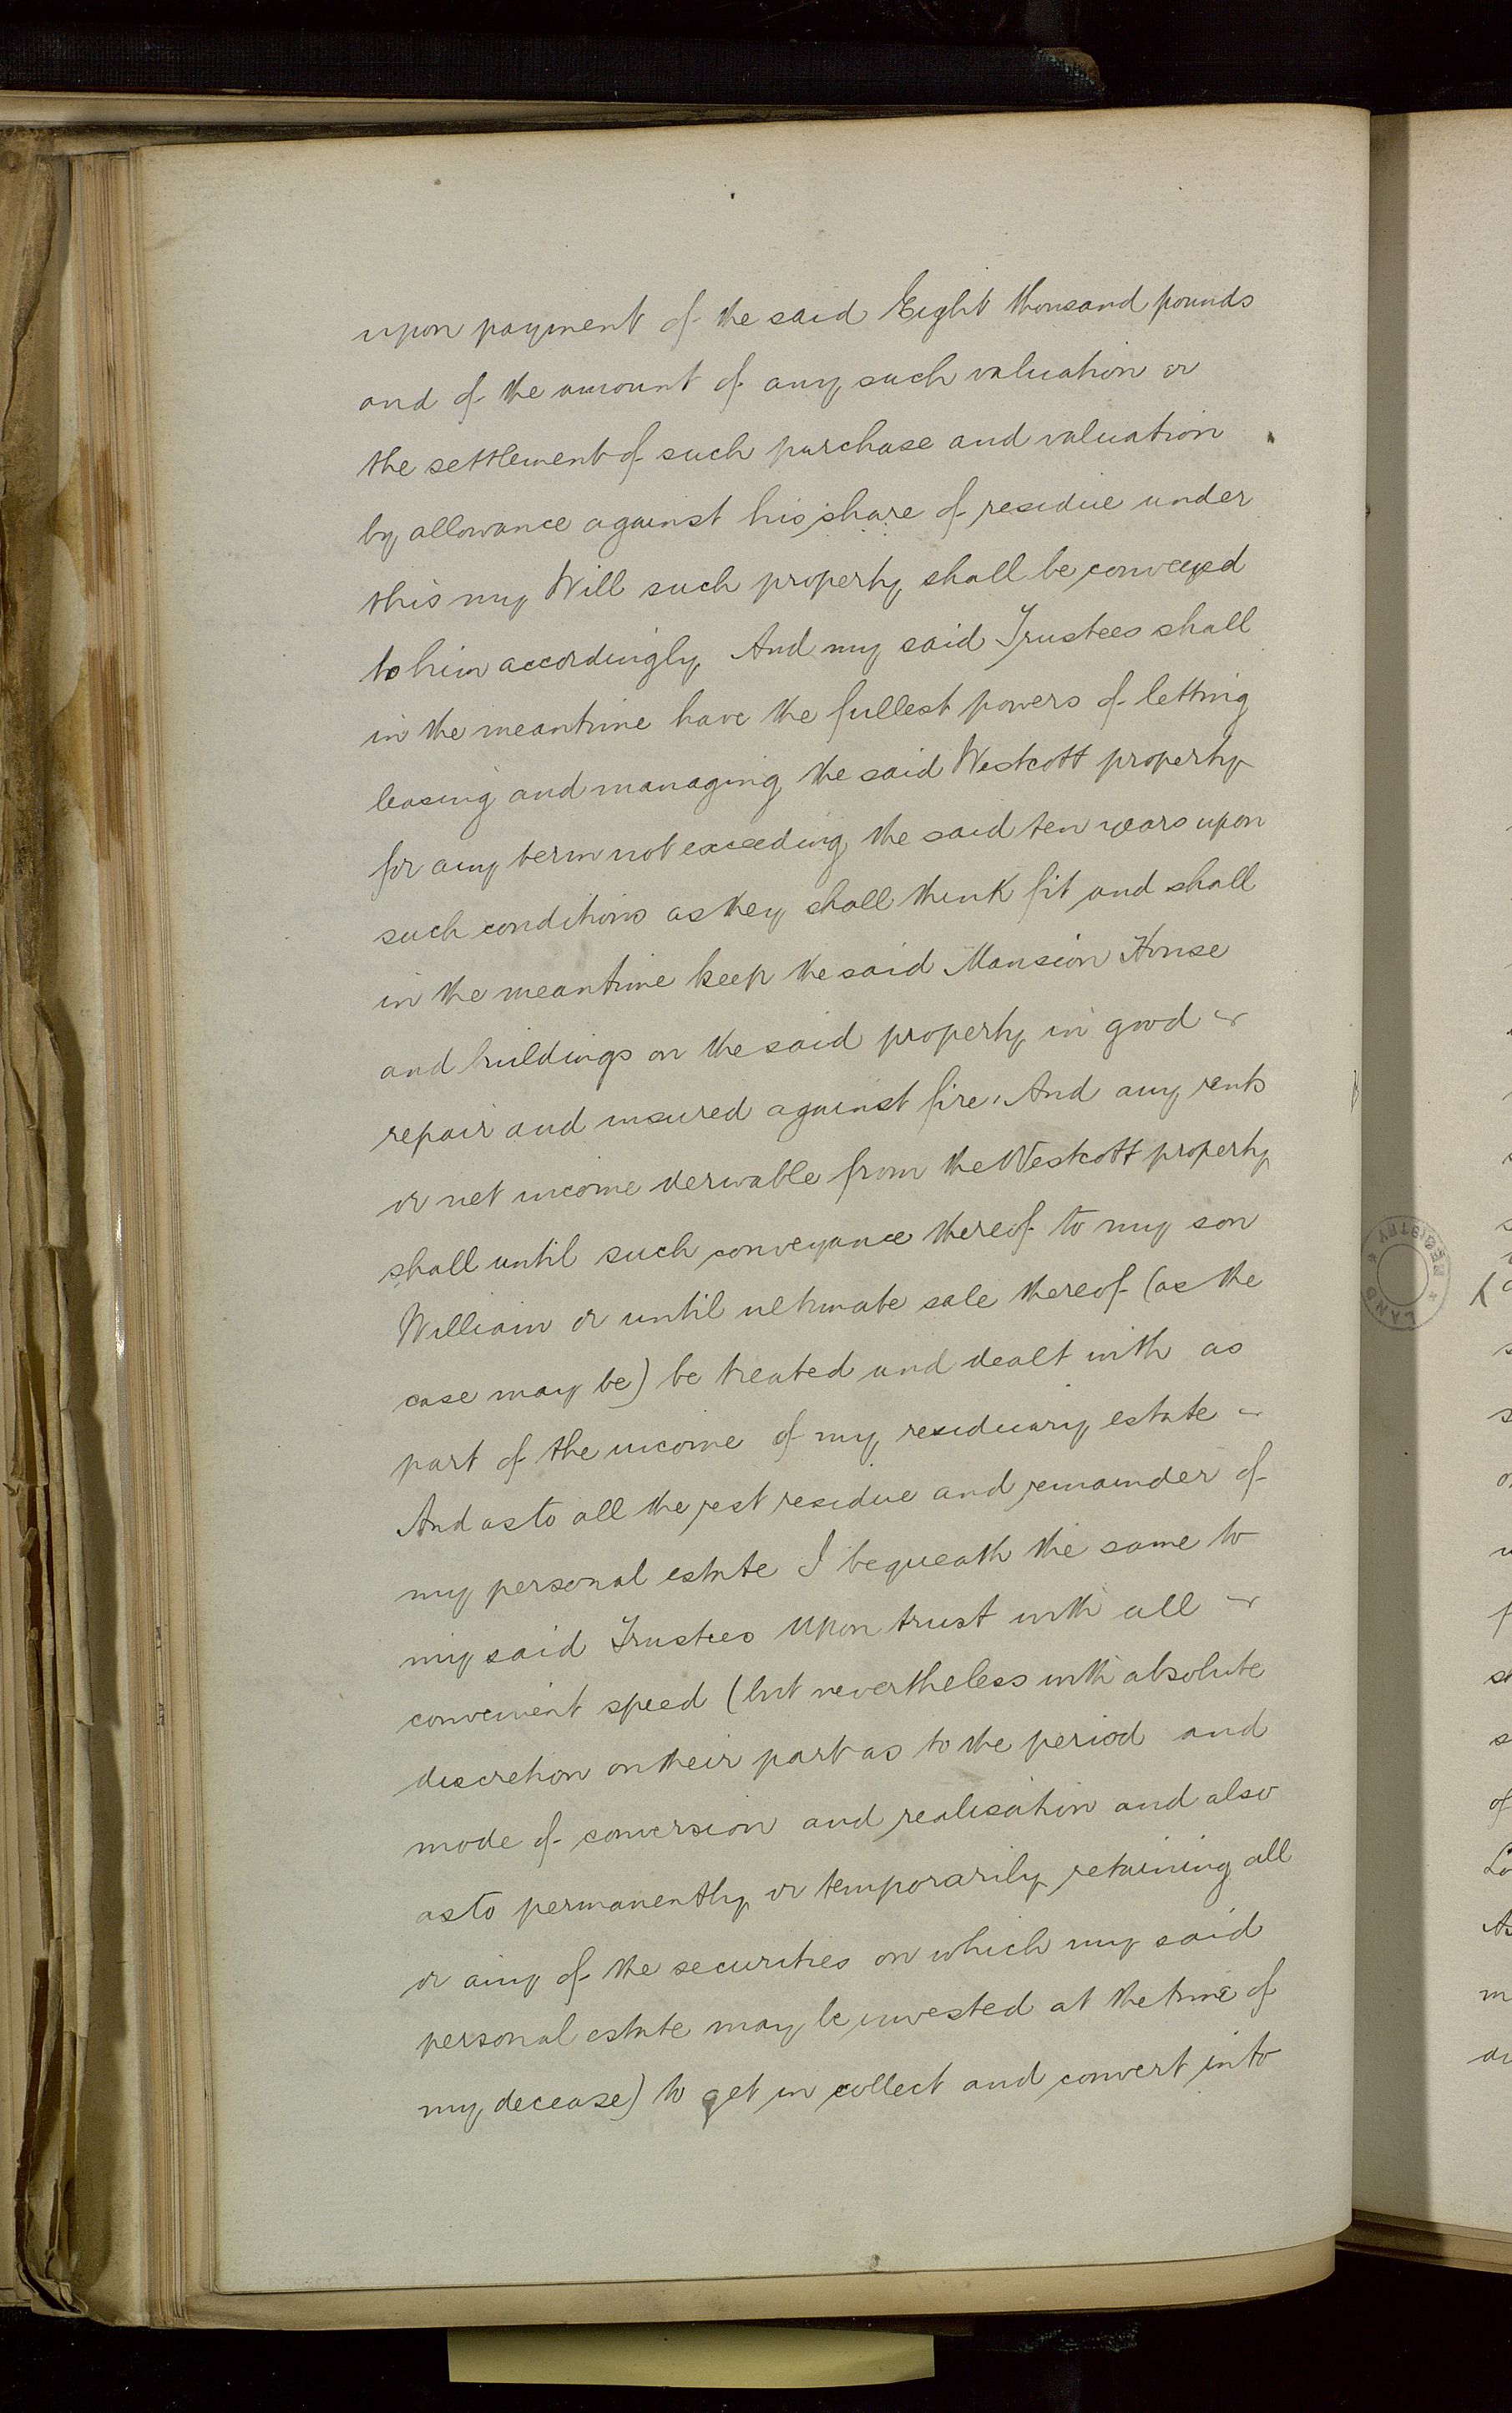 upon payment of the said Eight thousand pounds
and of the amount of any such valuation or
the settlement of such purchase and valuation
by allowance against his share of residue under
this my Will such property shall be conveyed
to him accordingly And my said Trustees shall
in the meantime have the fullest powers of letting
leasing and managing the said Westcott property
for any term not exceeding the said ten years upon
such conditions as they shall think fit and shall
in the meantime keep the said Mansion House
and buildings on the said property in good
repair and insured against fire. And any rents
or net income derivable from the Westcott property
shall until such conveyance thereof to my son
William or until ultimate sale thereof (as the
case may be) be treated and dealt with as
part of the income of my residuary estate
And as to all the rest residue and remainder of
my personal estate I bequeath the same to
my said Trustees Upon trust with all
convenient speed (but nevertheless with absolute
discretion on their part as to the period and
mode of conversion and realisation and also
as to permanently or temporarily retaining all
or any of the securities on which my said
personal estate may be invested at the time of
my decease) to get in collect and convert into
LAND REGISTRY